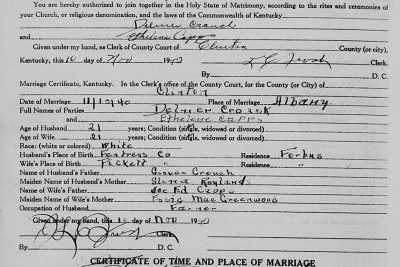 You are hereby authorized to join together in the Holy State of Matrimony, according to the rites and ceremonies of
your Church, or religious denomination, and the laws of the Commonwealth of Kentucky.
Delmer Crouch
and Ethelene Capps
Given under my hand, as Clerk of County Court of Clinton County (or city),
Kentucky, this 10 day of Nov
By D. C.
Marriage Certificate, Kentucky. In the Clerk's office of the County Court, for the County (or City) of
Clinton
Date of Marriage 11/10/40 Place of Marriage Albany
Full Names of Parties Delmer Crouch
and Ethelene Capps
Age of Husband 21 years; Condition (single, widowed or divorced)
Age of Wife 21 years; Condition (single, widowed or divorced)
Race: (white or colored) White
Husband's Place of Birth Fentress Co Residence Forbus
Wife's Place of Birth Pickett " Residence "
Name of Husband's Father Grover Crouch
Maiden Name of Husband's Mother
Name of Wife's Father Joe Ed Capps
Maiden Name of Wife's Mother Mae Greenwood
Occupation of Husband Farmer
Given under my hand, this 10 day of Nov
Clerk
By D. C.
CERTIFICATE OF TIME AND PLACE OF MARRIAGE